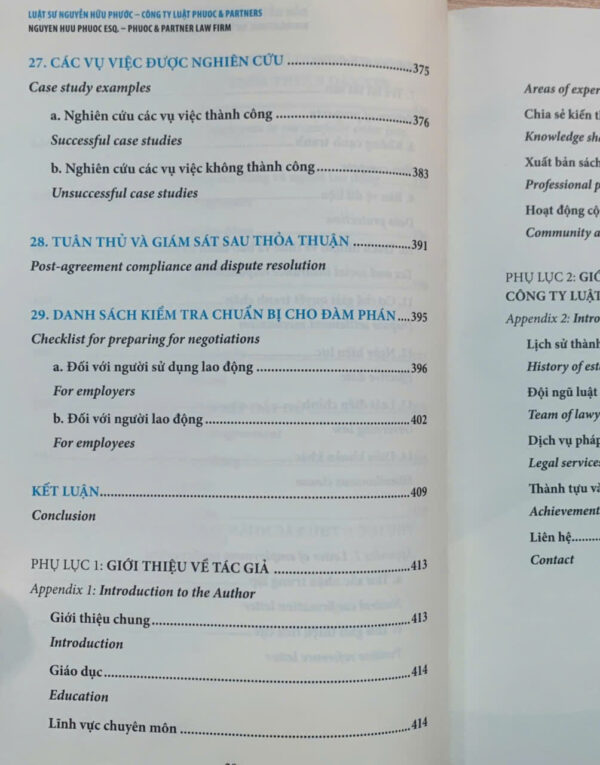 LUẬT SƯ NGUYỄN HỮU PHƯỚC – CÔNG TY LUẬT PHUOC & PARTNERS
NGUYEN HUU PHUOC ESQ. – PHUOC & PARTNER LAW FIRM
27. CÁC VỤ VIỆC ĐƯỢC NGHIÊN CỨU ....................375
Case study examples
a. Nghiên cứu các vụ việc thành công ....................376
Successful case studies
b. Nghiên cứu các vụ việc không thành công ....................383
Unsuccessful case studies
28. TUÂN THỦ VÀ GIÁM SÁT SAU THỎA THUẬN ....................391
Post-agreement compliance and dispute resolution
29. DANH SÁCH KIỂM TRA CHUẨN BỊ CHO ĐÀM PHÁN....395
Checklist for preparing for negotiations
a. Đối với người sử dụng lao động ....................396
For employers
b. Đối với người lao động ....................402
For employees
KẾT LUẬN....................409
Conclusion
PHỤ LỤC 1: GIỚI THIỆU VỀ TÁC GIẢ ....................413
Appendix 1: Introduction to the Author
Giới thiệu chung ....................413
Introduction
Giáo dục....................414
Education
Lĩnh vực chuyên môn ....................414
Areas of exper
Chia sẻ kiến t
Knowledge sha
Xuất bản sách
Professional p
Hoạt động cộ
Community a
PHỤ LỤC 2: GIỚ
CÔNG TY LUẬT
Appendix 2: Intro
Lịch sử thành
History of est
Đội ngũ luật
Team of lawy
Dịch vụ pháp
Legal services
Thành tựu và
Achievement
Liên hệ.....
Contact